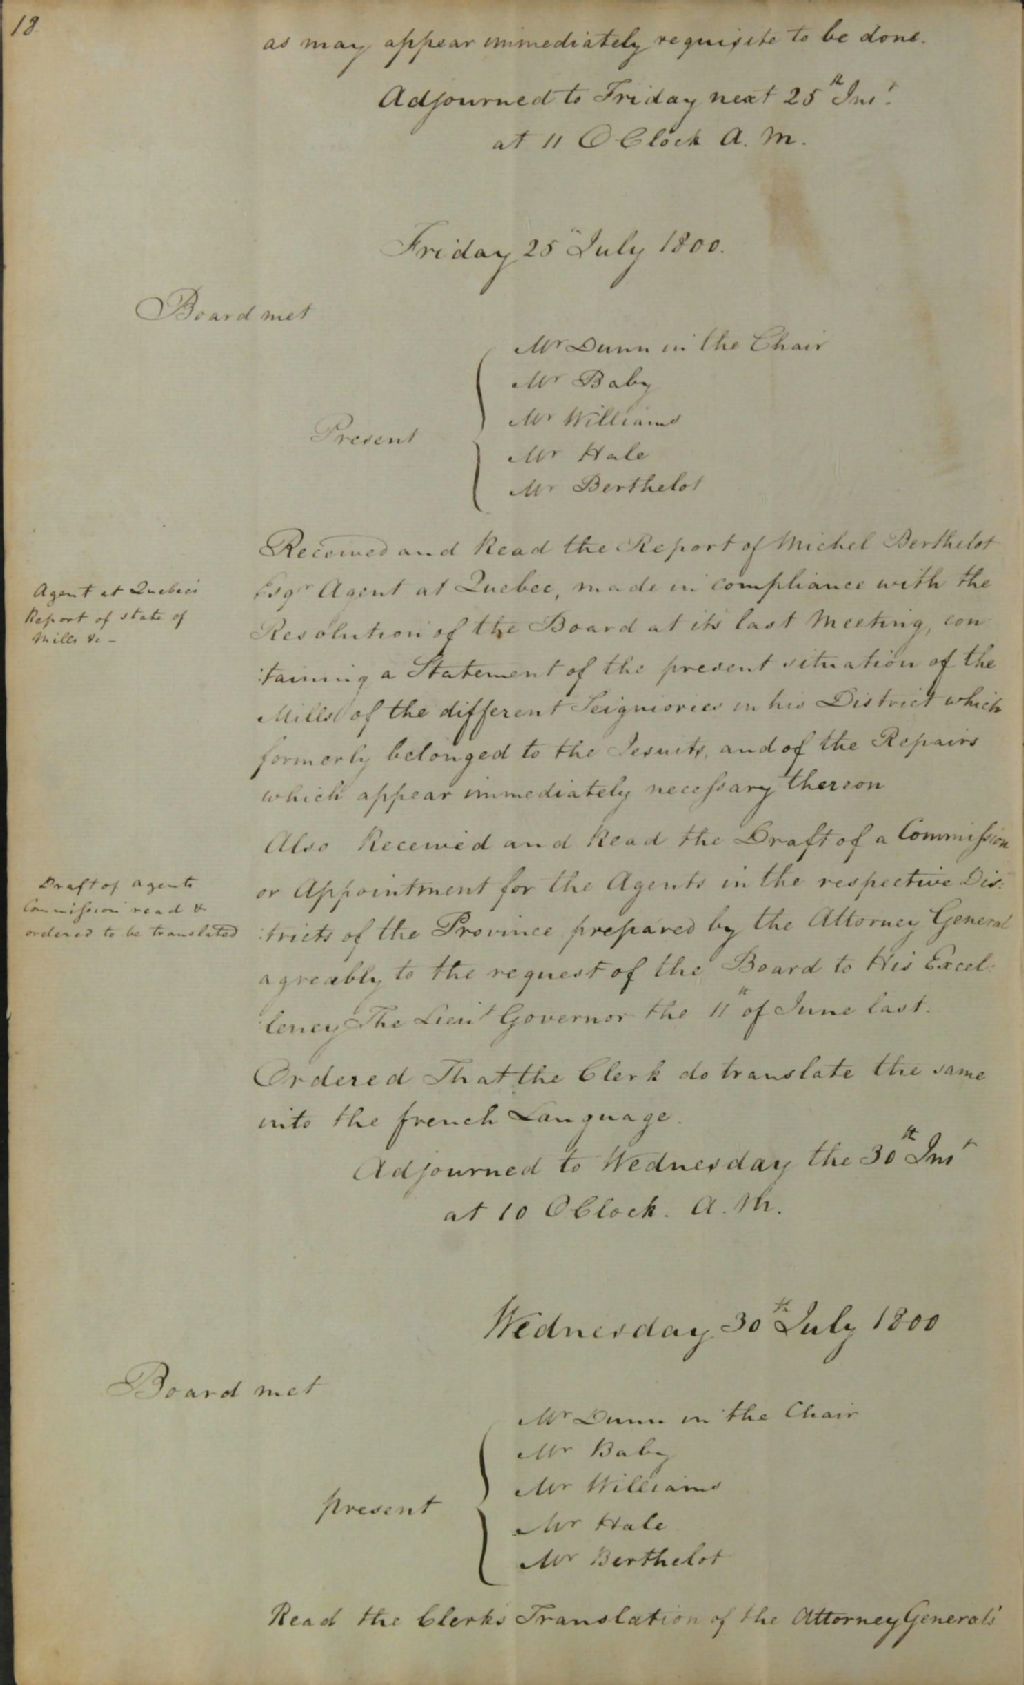 18
as may appear immediately requisite to be done.
Adjourned to Friday next 25th Inst.
at 11 O Clock A. M.
Friday 25th July 1800.
Board met
Present
Mr Dunn in the Chair
Mr Baby
Mr Williams
Mr Hale
Mr Berthelot
Agent at Quebec's
Report of state of
Mills &c -
Received and Read the Report of Michel Berthelot
Esqr Agent at Quebec, made in compliance with the
Resolution of the Board at its last Meeting, con
:taining a Statement of the present situation of the
Mills of the different Seigniories in his District which
formerly belonged to the Jesuits, and of the Repairs
which appear immediately necessary thereon
Draft of agents
Commission read &
ordered to be translated
Also Received and Read the Draft of a Commission
or Appointment for the Agents in the respective Dis:
:tricts of the Province prepared by the Attorney General
agreably to the request of the Board to His Excel:
:lency The Lieut Governor the 11th of June last.
Ordered That the Clerk do translate the same
into the french Language.
Adjourned to Wednesday the 30th Inst
at 10 O Clock. A. M.
Wednesday 30th July 1800
Board met
present
Mr Dunn in the Chair
Mr Baby
Mr Williams
Mr Hale
Mr Berthelot
Read the Clerk's Translation of the Attorney General's